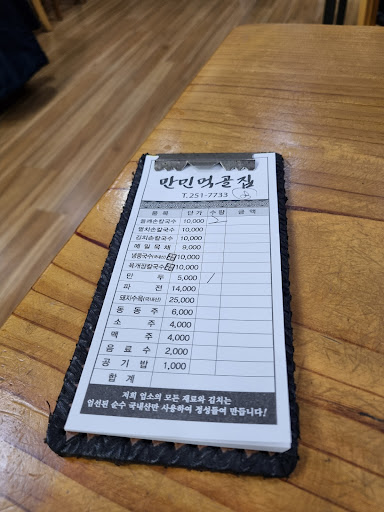 만민먹골집
T.251-7733
품목 단가 수량 금액
들깨손칼국수 10,000 2
멸치손칼국수 10,000
김치손칼국수 10,000
메밀묵채 9,000
냉콩국수(국내산) 10,000
육개장칼국수 10,000
만두 5,000 /
파전 14,000
돼지수육(국내산) 25,000
동동주 6,000
소주 4,000
맥주 4,000
음료수 2,000
공기밥 1,000
합계
저희 업소의 모든 재료와 김치는
엄선된 순수 국내산만 사용하여 정성들여 만듭니다!